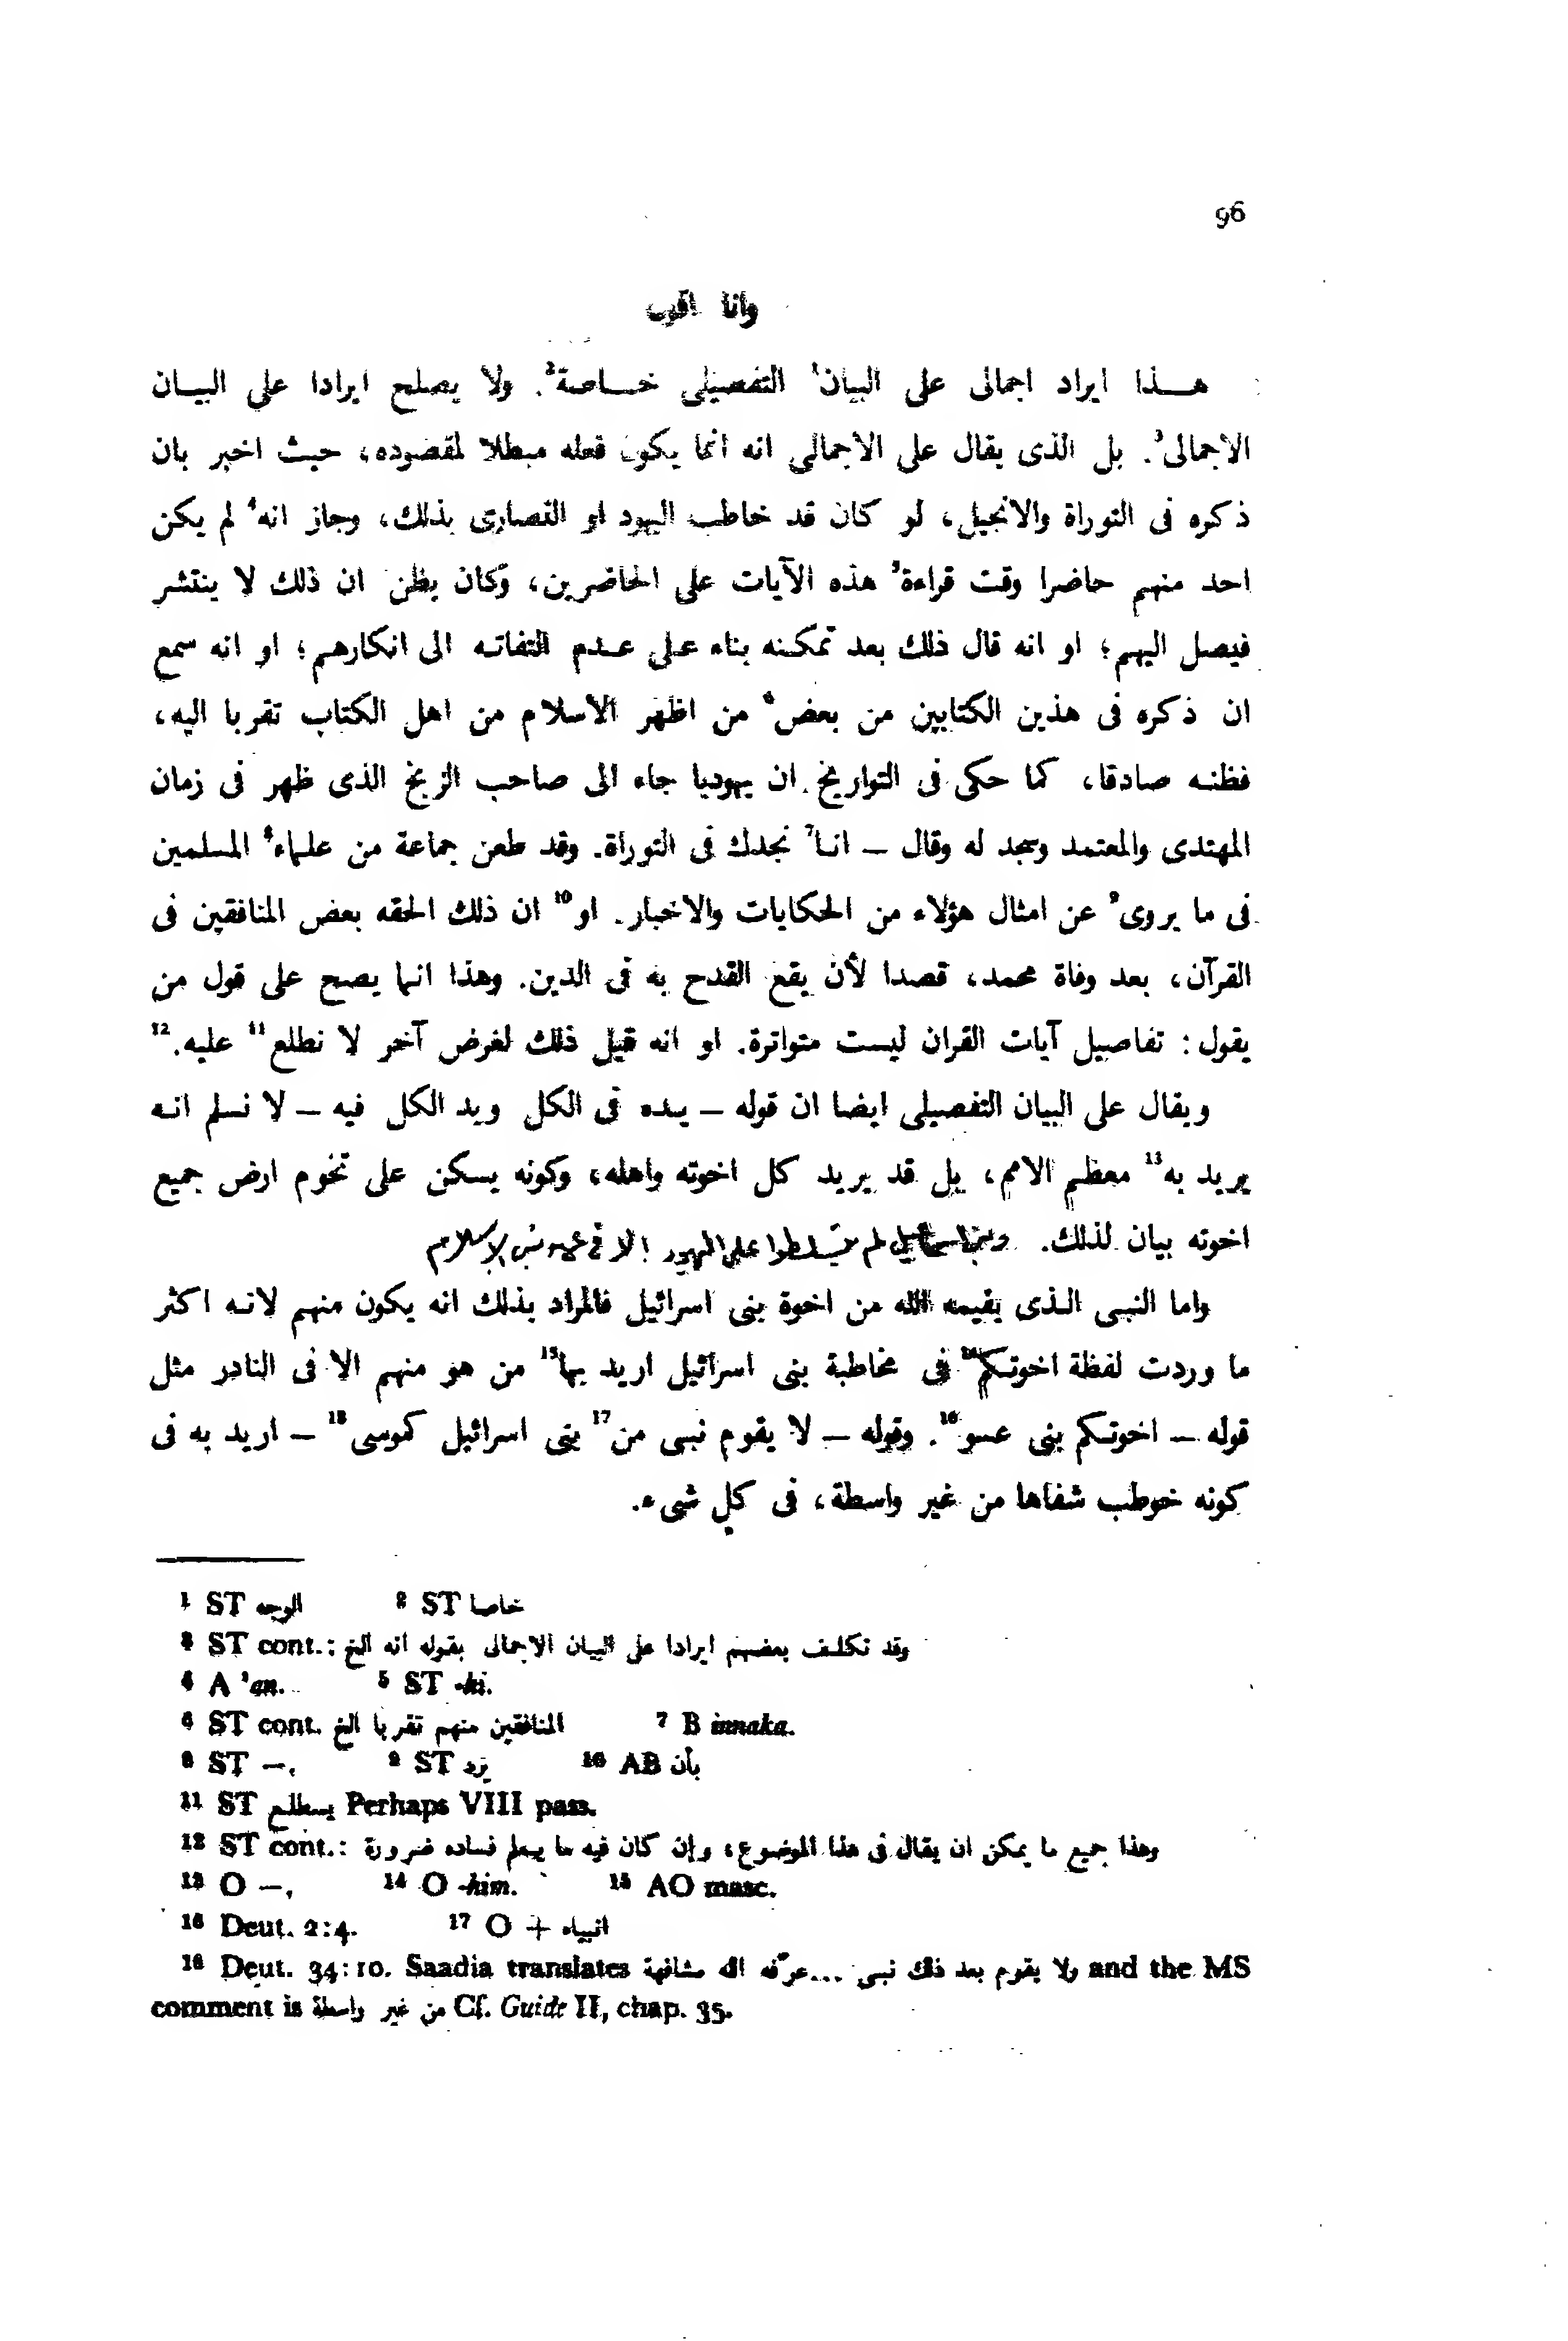 96
وانا اقول
هـذا ايراد اجمالى على البيان¹ التفصيلى خـاصة². ولا يصلح ايرادا على البيـان
الاجمالى³. بل الذى يقال على الاجمالى انه انما يكون فعله مبطلا لمقصوده، حيث اخبر بان
ذكره فى التوراة والانجيل، لو كان قد خاطب اليهود او النصارى بذلك، وجاز انه⁴ لم يكن
احد منهم حاضرا وقت قراءة⁵ هذه الآيات على الحاضرين، وكان يظن ان ذلك لا ينتشر
فيصل اليهم؛ او انه قال ذلك بعد تمكنه بناء على عدم التفاته الى انكارهم؛ او انه سمع
ان ذكره فى هذين الكتابين من بعض⁶ من اظهر الاسلام من اهل الكتاب تقربا اليه،
فظنه صادقا، كما حكى فى التواريخ ان يهوديا جاء الى صاحب الزنج الذى ظهر فى زمان
المهتدى والمعتمد وسجد له وقال – انا⁷ نجدك فى التوراة. وقد طعن جماعة من علماء⁸ المسلمين
فى ما يروى⁹ عن امثال هؤلاء من الحكايات والاخبار. او¹⁰ ان ذلك الحقه بعض المنافقين فى
القرآن، بعد وفاة محمد، قصدا لأن يقع القدح به فى الدين. وهذا انما يصح على قول من
يقول: تفاصيل آيات القران ليست متواترة. او انه قيل ذلك لغرض آخر لا نطلع¹¹ عليه.¹²
ويقال على البيان التفصيلى ايضا ان قوله – يده فى الكل ويد الكل فيه – لا نسلم انه
يريد به¹³ معظم الامم، بل قد يريد كل اخوته واهله، وكونه يسكن على تخوم ارض جميع
اخوته بيان لذلك. وبنو اسماعيل لم يتسلطوا على اليهود الا فى الاسلام
واما النبى الذى يقيمه الله من اخوة بنى اسرائيل فالمراد بذلك انه يكون منهم لانه اكثر
ما وردت لفظة اخوتكم¹⁴ فى مخاطبة بنى اسرائيل اريد بها¹⁵ من هو منهم الا فى النادر مثل
قوله – اخوتكم بنى عسو¹⁶. وقوله – لا يقوم نبى من¹⁷ بنى اسرائيل كموسى¹⁸ – اريد به فى
كونه خوطب شفاها من غير واسطة، فى كل شىء.
¹ ST الوجه ² ST خاصا
³ ST cont.: وقد تكلف بعضهم ايرادا على البيان الاجمالى بقوله انه الخ
⁴ A 'an. ⁵ ST -hi.
⁶ ST cont. المنافقين منهم تقربا الخ ⁷ B innaka.
⁸ ST –. ⁹ ST يرد ¹⁰ AB بأن
¹¹ ST يسطلع Perhaps VIII pass.
¹² ST cont.: وهذا جميع ما يمكن ان يقال فى هذا الموضوع، وإن كان فيه ما يعلم فساده ضرورة
¹³ O –. ¹⁴ O -him. ¹⁵ AO masc.
¹⁶ Deut. 2:4. ¹⁷ O + انبياء
¹⁸ Deut. 34:10. Saadia translates ولا يقوم بعد ذلك نبى ... عرّفه الله مشافهة and the MS
comment is من غير واسطة Cf. Guide II, chap. 35.